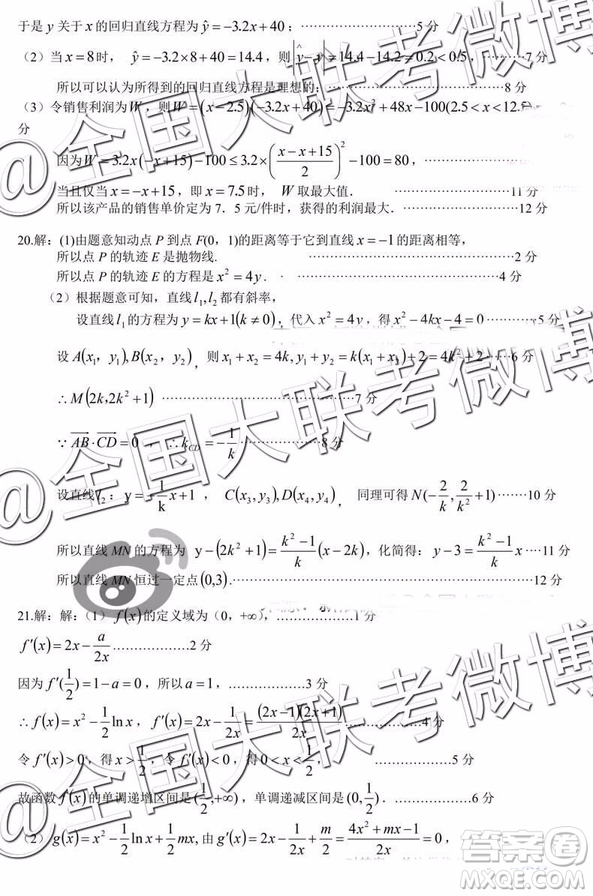 于是 y 关于 x 的回归直线方程为 ŷ = -3.2x + 40；……………5分
（2）当 x = 8 时， ŷ = -3.2×8+40 = 14.4，则 |ŷ - y| = |14.4 - 14.2| = 0.2 < 0.5，………7分
所以可以认为所得到的回归直线方程是理想的；………………8分
（3）令销售利润为W，则 W = (x - 2.5)(-3.2x + 40) = -3.2x² + 48x - 100(2.5 < x < 12.5)
分
因为 W = 3.2x(-x+15) - 100 ≤ 3.2×((x - x + 15)/2)² - 100 = 80，…………………10分
当且仅当 x = -x + 15，即 x = 7.5 时， W 取最大值. ………………11分
所以该产品的销售单价定为7．5元/件时，获得的利润最大. ………………12分
20.解：(1)由题意知动点 P 到点 F(0，1)的距离等于它到直线 x = -1 的距离相等，
所以点 P 的轨迹 E 是抛物线. ………………2分
所以点 P 的轨迹 E 的方程是 x² = 4y． ………………4分
（2）根据题意可知，直线 l₁, l₂ 都有斜率，
设直线 l₁ 的方程为 y = kx + 1(k ≠ 0)，代入 x² = 4y，得 x² - 4kx - 4 = 0 ………5分
设 A(x₁，y₁), B(x₂，y₂)，则 x₁ + x₂ = 4k, y₁ + y₂ = k(x₁ + x₂) + 2 = 4k² + 2 ……6分
∴ M(2k, 2k² + 1) ………………7分
∵ AB·CD = 0 ， ∴ k_CD = -1/k ………………8分
设直线 l₂：y = -1/k x + 1 ， C(x₃, y₃), D(x₄, y₄)， 同理可得 N(-2/k, 2/k² + 1) ……10分
所以直线 MN 的方程为 y - (2k² + 1) = (k² - 1)/k (x - 2k)，化简得：y - 3 = (k² - 1)/k x ……11分
所以直线 MN 恒过一定点 (0,3). ………………12分
21.解：解：(1) f(x) 的定义域为（0，+∞），……………1分
f′(x) = 2x - a/2x ………………2分
因为 f′(1/2) = 1 - a = 0，所以 a = 1，……………3分
∴ f(x) = x² - 1/2 ln x， f′(x) = 2x - 1/2x = (2x - 1)(2x + 1)/2x ………………4分
令 f′(x) > 0，得 x > 1/2，令 f′(x) < 0，得 0 < x < 1/2，………………5分
故函数 f(x) 的单调递增区间是 (1/2, +∞)，单调递减区间是 (0, 1/2). ……………6分
（2）g(x) = x² - 1/2 ln x + 1/2 mx, 由 g′(x) = 2x - 1/2x + m/2 = (4x² + mx - 1)/2x = 0，
@全国大联考微博
@全国大联考微博
@全国大联考微博
答案圈